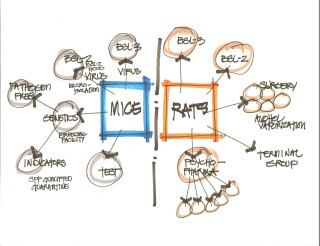 BSL-2
BSL-2
HOOD
VIRUS
MICRO-
ISOLATION
BSL-3
VIRUS
PATHOGEN
FREE
GENETICS
BREEDING
FACILITY
INDICATORS
SPF QUALIFIED
QUARANTINE
TEST
MICE
RATS
BSL-3
BSL-2
SURGERY
ALCOHOL
VAPORIZATION
TERMINAL
GROUP
PSYCHO-
PHARMA